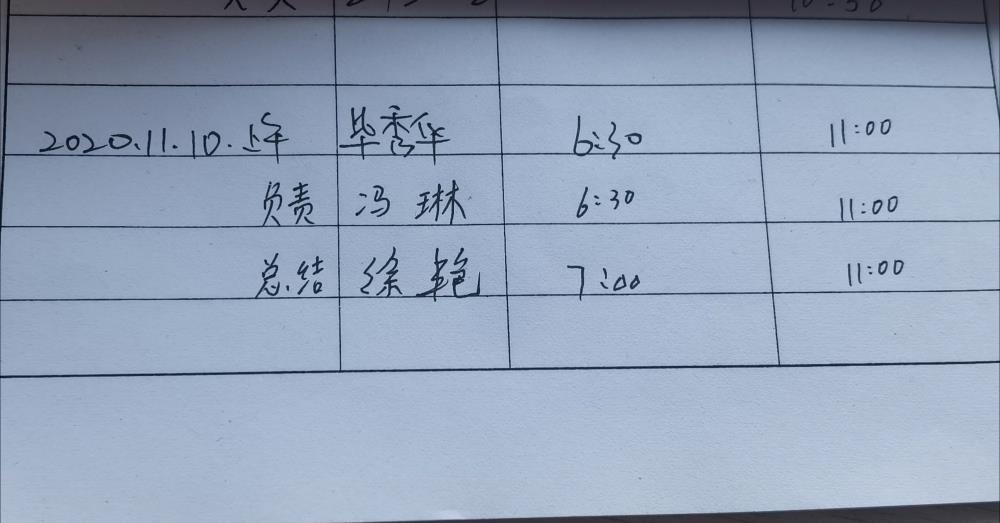 2020.11.10.上午 毕秀华 6:30 11:00
负责 冯琳 6:30 11:00
总结 徐艳 7:00 11:00